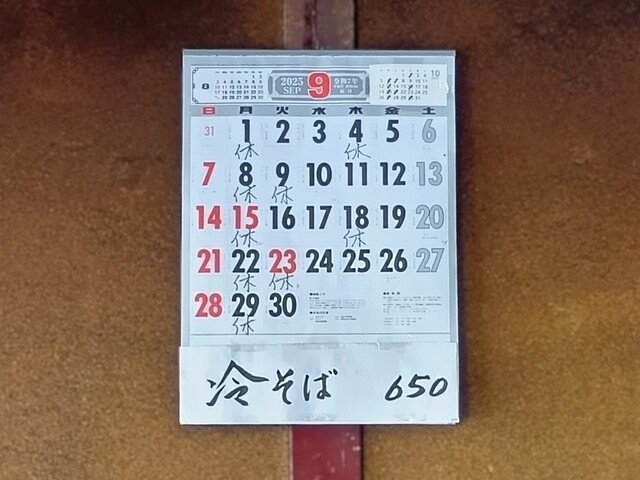 8 2025 SEP 9 令和7年 10
日 月 火 水 木 金 土
31 1 2 3 4 5 6
休 休
7 8 9 10 11 12 13
休 休
14 15 16 17 18 19 20
休 休
21 22 23 24 25 26 27
休 休
28 29 30
休
冷そば 650